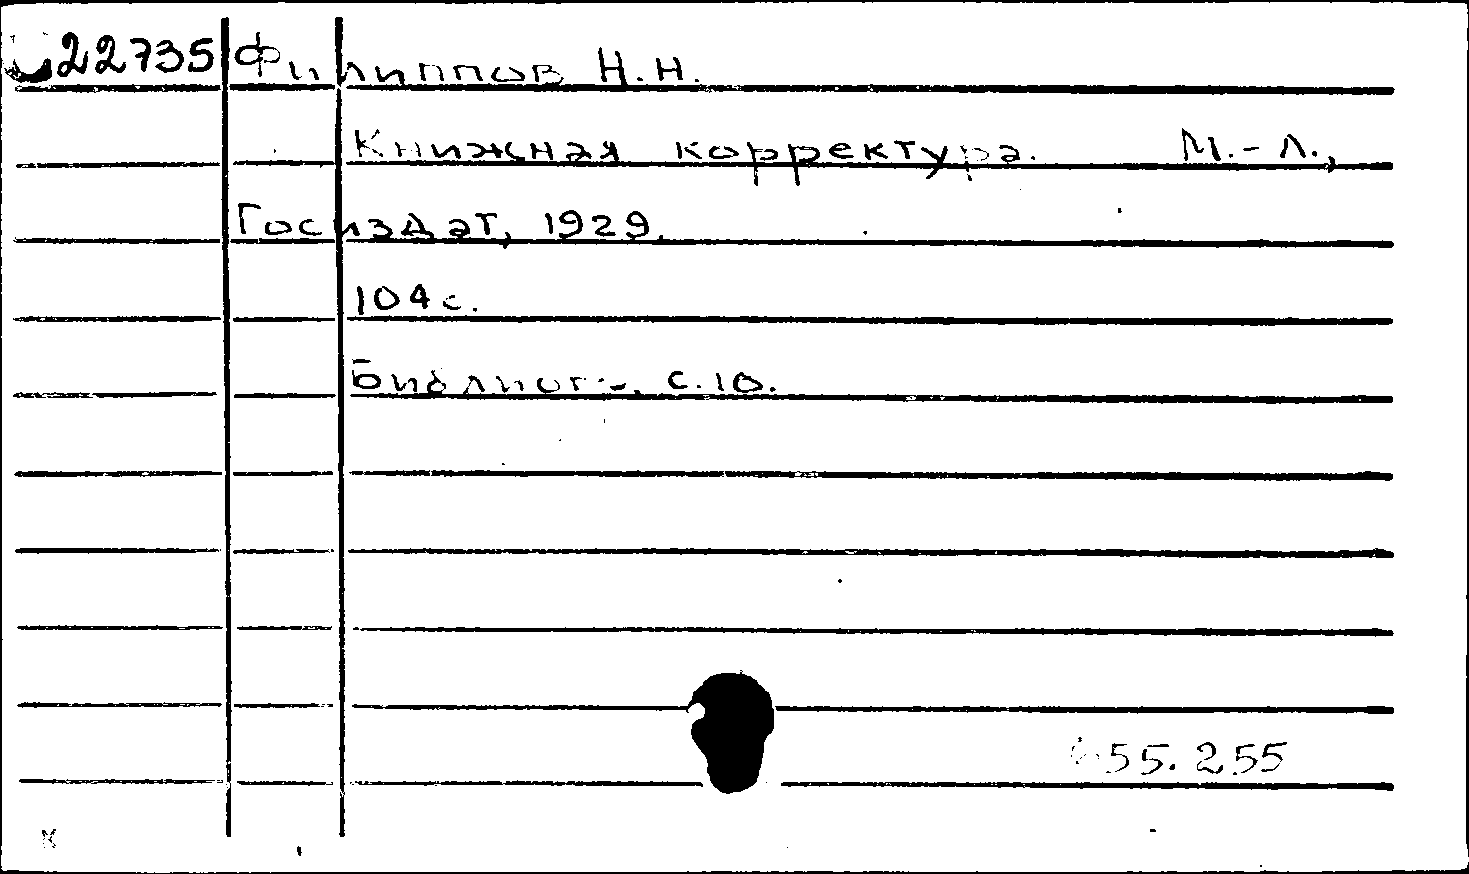 22735 Филиппов Н.Н.
Книжная корректура. М.-Л.,
Госиздат, 1929.
104 с.
с. 10.
655.255